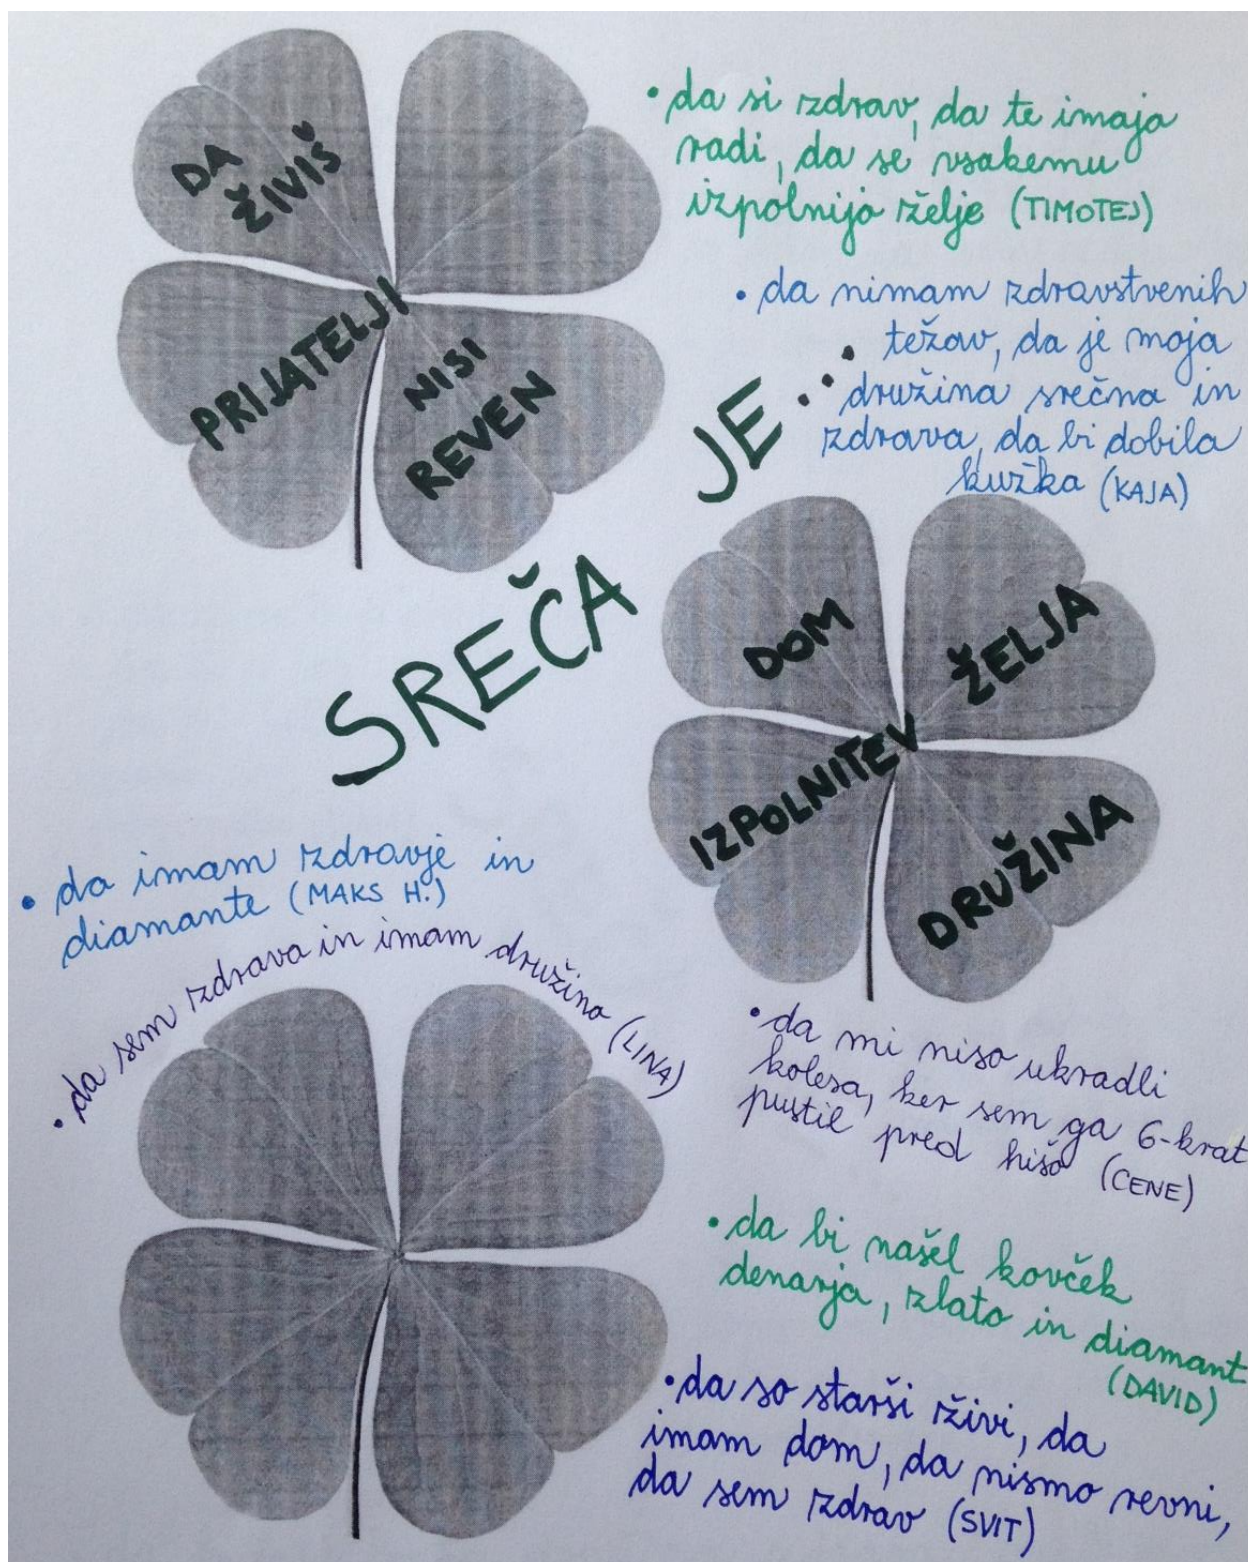 DA
ŽIVIŠ
PRIJATELJI
NISI
REVEN
• da si zdrav, da te imajo
radi, da se vsakemu
izpolnijo želje (TIMOTEJ)
• da nimam zdravstvenih
težav, da je moja
družina srečna in
zdrava, da bi dobila
kužka (KAJA)
SREČA
JE...
DOM
ŽELJA
IZPOLNITEV
DRUŽINA
• da imam zdravje in
diamante (MAKS H.)
• da sem zdrava in imam družino (LINA)
• da mi niso ukradli
kolesa, ker sem ga 6-krat
pustil pred hišo (CENE)
• da bi našel kovček
denarja, zlato in diamant
(DAVID)
• da so starši živi, da
imam dom, da nismo revni,
da sem zdrav (SVIT)